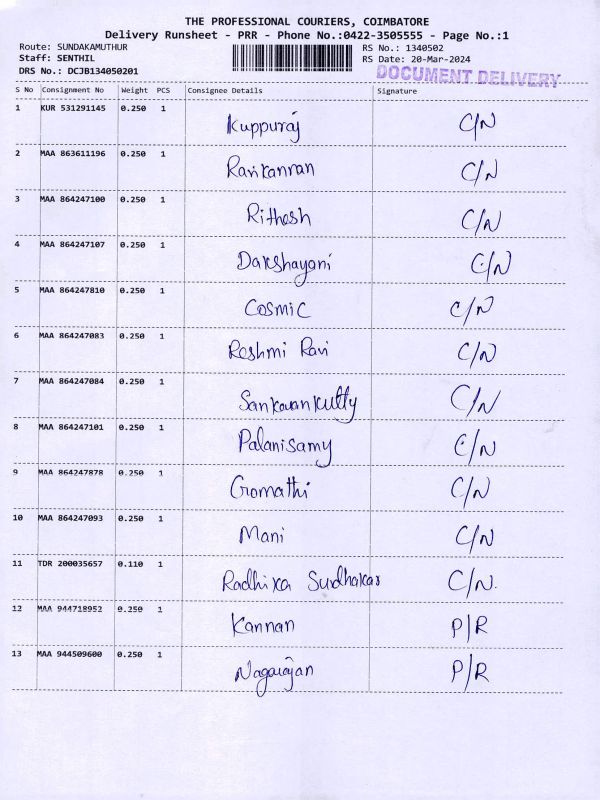 THE PROFESSIONAL COURIERS, COIMBATORE
Delivery Runsheet - PRR - Phone No.:0422-3505555 - Page No.:1
Route: SUNDAKAMUTHUR RS No.: 1340502
Staff: SENTHIL RS Date: 20-Mar-2024
DRS No.: DCJB134050201 DOCUMENT DELIVERY
S No Consignment No Weight PCS Consignee Details Signature
1 KUR 531291145 0.250 1 Kuppuraj C/N
2 MAA 863611196 0.250 1 Ravikannan C/N
3 MAA 864247100 0.250 1 Rithesh C/N
4 MAA 864247107 0.250 1 Dakshayani C/N
5 MAA 864247810 0.250 1 Cosmic C/N
6 MAA 864247083 0.250 1 Reshmi Ravi C/N
7 MAA 864247084 0.250 1 Sankarankutty C/N
8 MAA 864247101 0.250 1 Palanisamy C/N
9 MAA 864247878 0.250 1 Gomathi C/N
10 MAA 864247093 0.250 1 Mani C/N
11 TDR 200035657 0.110 1 Radhika Sudhakar C/N.
12 MAA 944718952 0.250 1 Kannan P/R
13 MAA 944509600 0.250 1 Nagarajan P/R